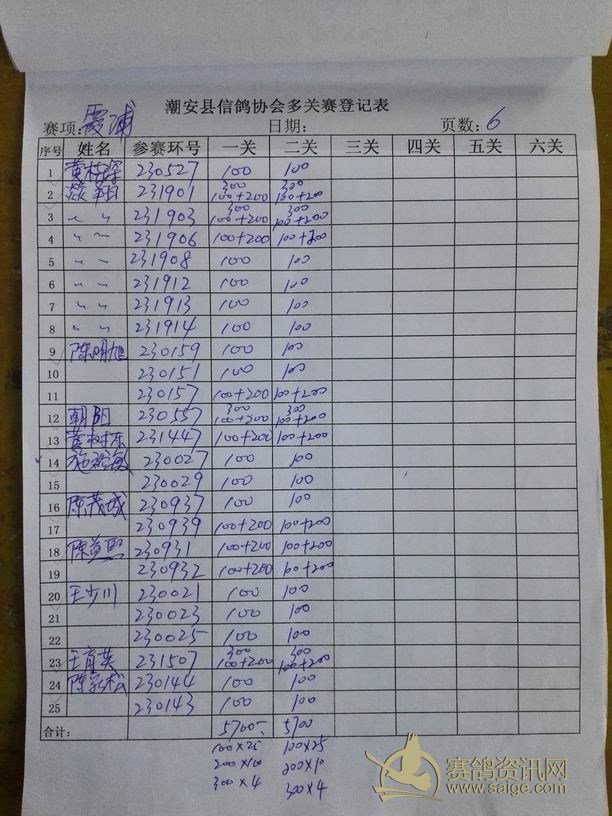 潮安县信鸽协会多关赛登记表
赛项: 霞浦 日期: 页数: 6
序号 姓名 参赛环号 一关 二关 三关 四关 五关 六关
1 230527 100 100
300 300
2 231901 100+200 100+200
300 300
3 〃 〃 231903 100+200 100+200
4 〃 〃 231906 100+200 100+200
5 〃 〃 231908 100 100
6 〃 〃 231912 100 100
7 〃 〃 231913 100 100
8 〃 〃 231914 100 100
9 陈明旭 230159 100 100
10 230151 100 100
11 230157 100+200 100+200
300 300
12 朝阳 230557 100+200 100+200
13 黄树东 231447 100+200 100+200
14 230027 100 100
15 230029 100 100
16 陈茂城 230937 100 100
17 230939 100+200 100+200
18 陈英熙 230931 100+200 100+200
19 230932 100+200 100+200
20 王少川 230021 100 100
21 230023 100 100
22 230025 100 100
300 300
23 王育英 231507 100+200 100+200
24 230144 100 100
25 230143 100 100
合计: 5700 5700
100×25 100×25
200×10 200×10
300×4 300×4
赛鸽资讯网
www.saige.com